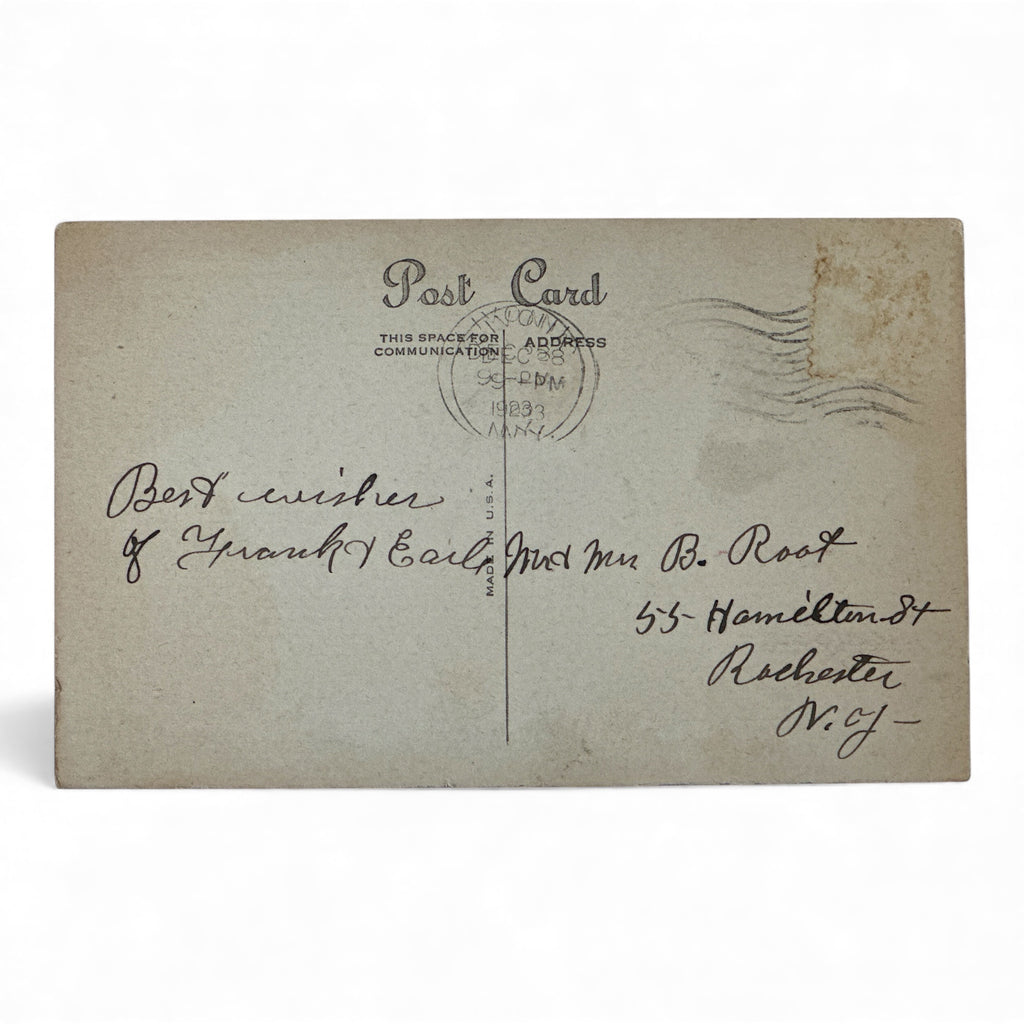 Post Card
THIS SPACE FOR
COMMUNICATION
ADDRESS
PM
1923
N.Y.
MADE IN U.S.A.
Best wishes
of Frank & Earl
Mr & Mrs B. Root
55 Hamilton St
Rochester
N.Y.